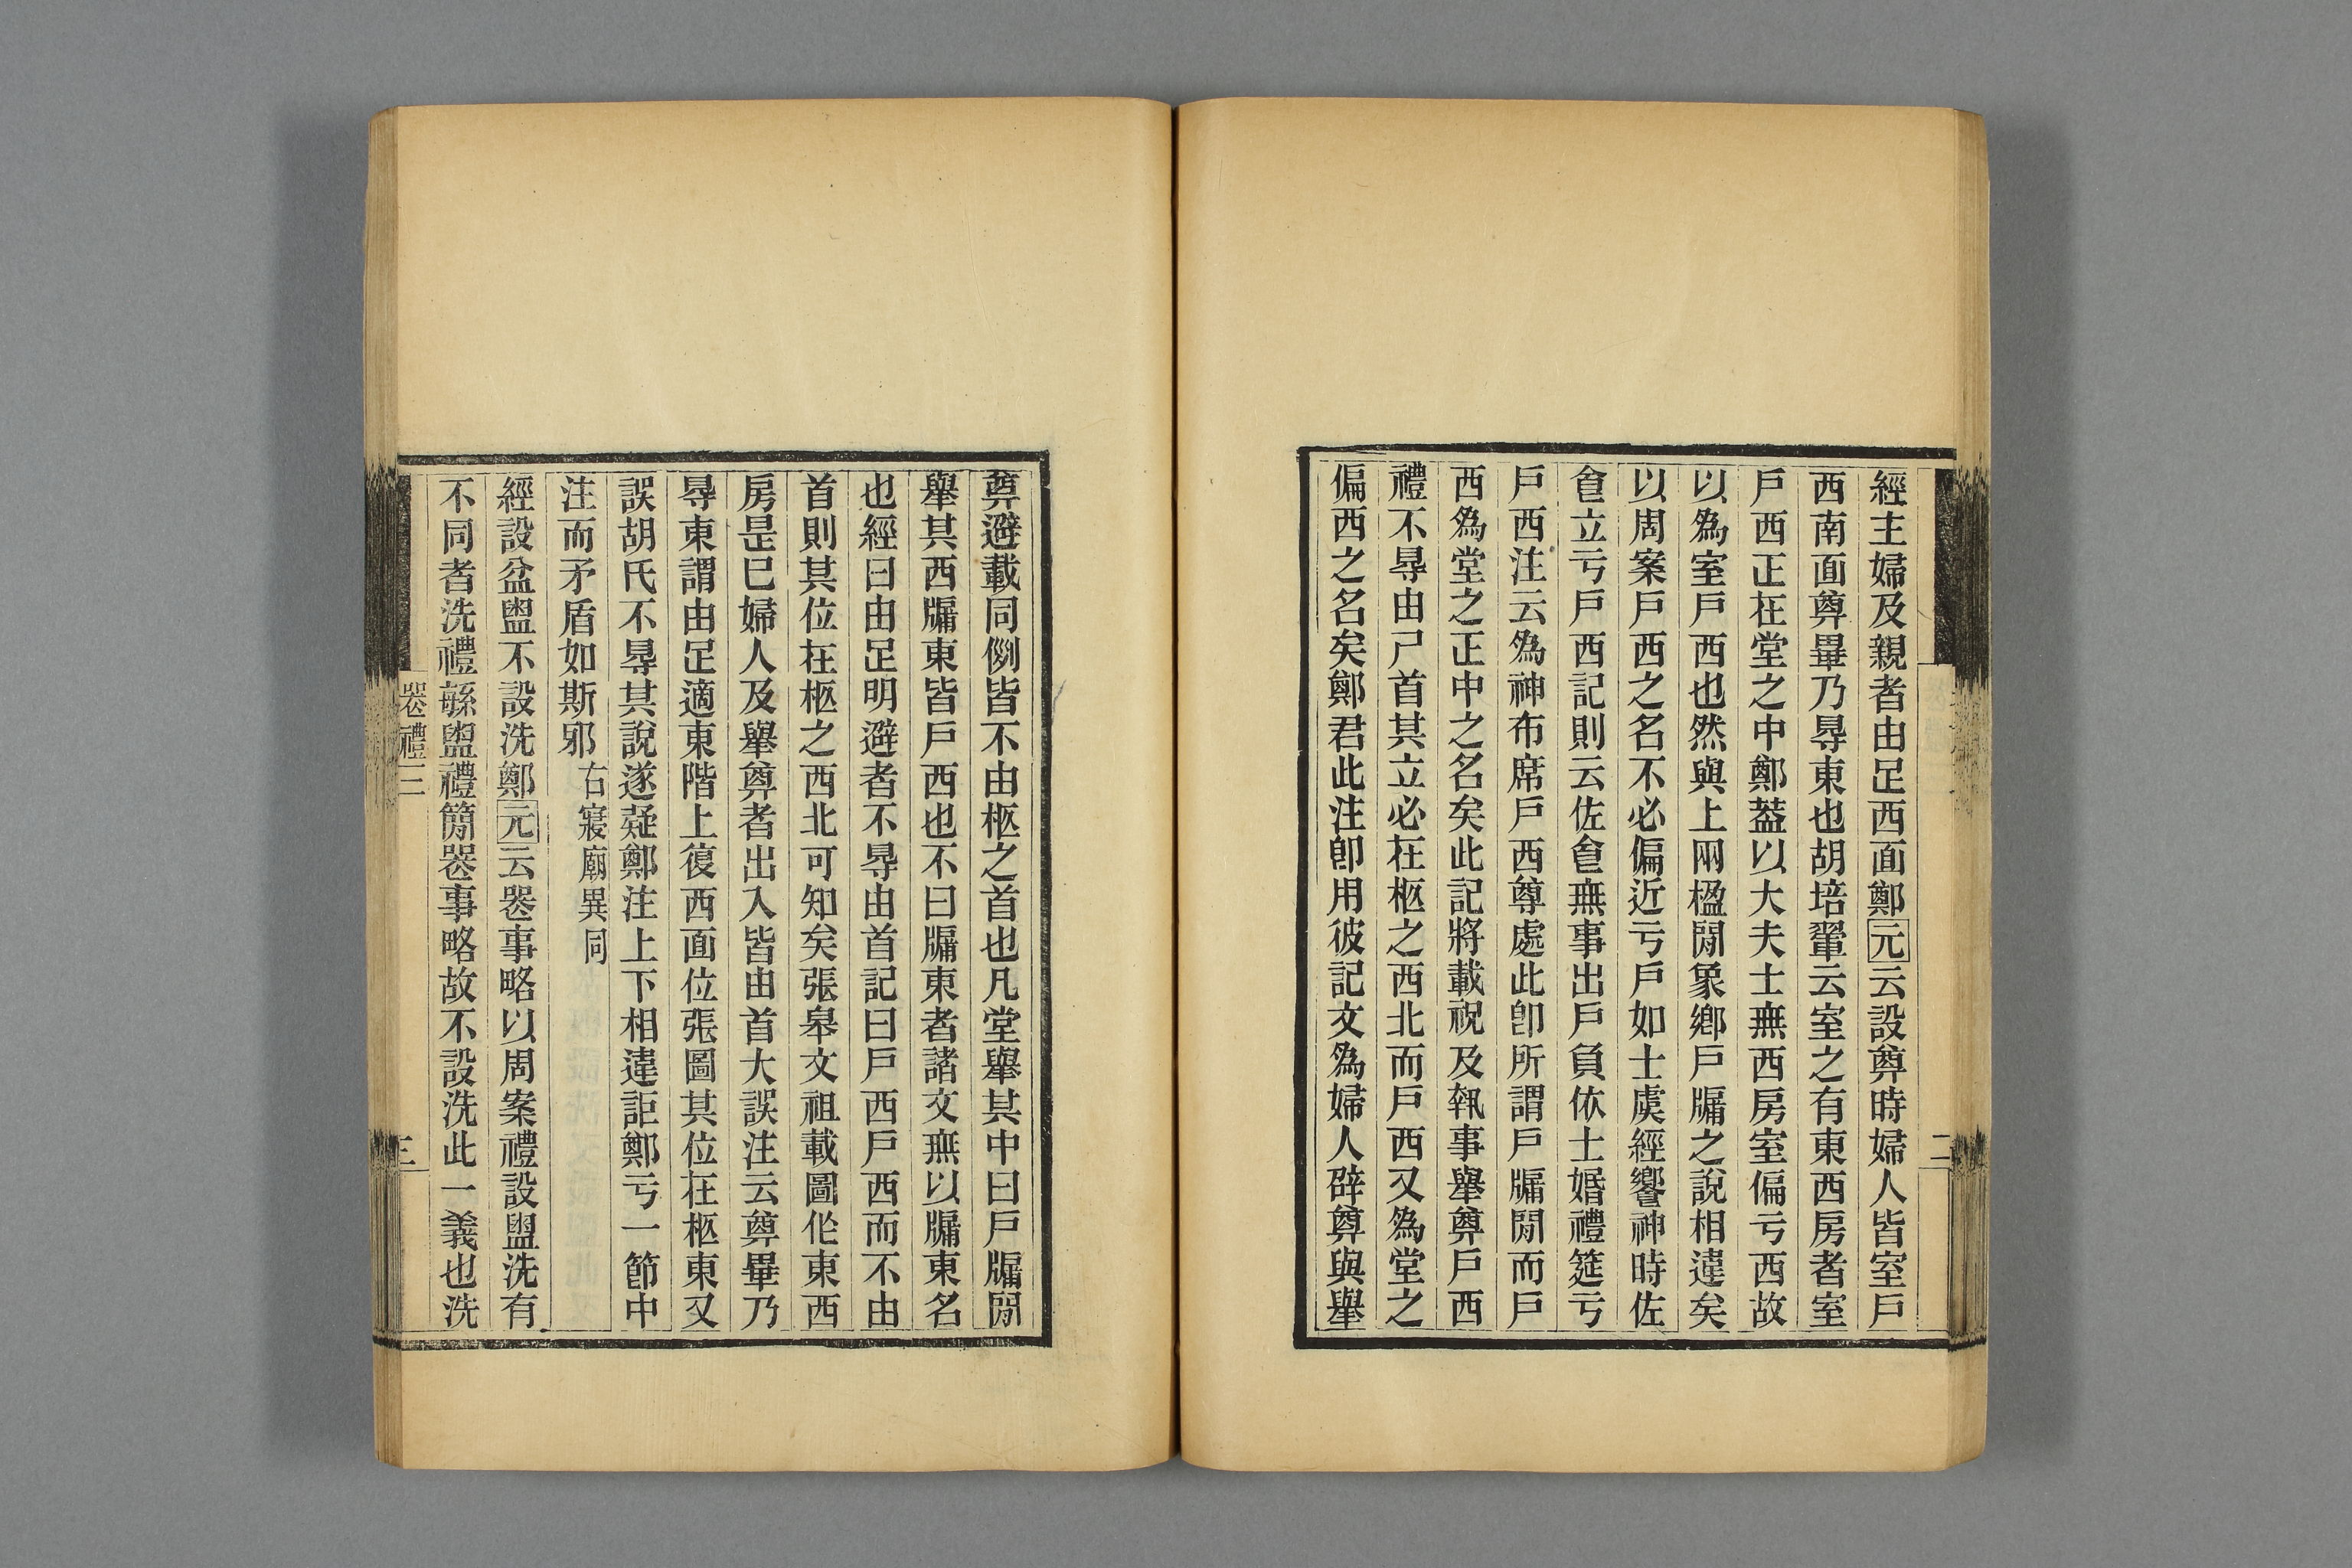 經主婦及親者由足西面鄭元云設奠時婦人皆室戶
西南面奠畢乃㝵東也胡培翬云室之有東西房者室
戶西正在堂之中鄭蓋以大夫士無西房室偏亏西故
以爲室戶西也然與上兩楹閒象鄉戶牖之說相違矣
以周案戶西之名不必偏近亏戶如士虞經饗神時佐
食立亏戶西記則云佐食無事出戶負依士婚禮筵亏
戶西注云爲神布席戶西尊處此卽所謂戶牖閒而戶
西爲堂之正中之名矣此記將載祝及執事舉奠戶西
禮不㝵由尸首其立必在柩之西北而戶西又爲堂之
偏西之名矣鄭君此注卽用彼記文爲婦人辟奠與舉
二
奠避載同例皆不由柩之首也凡堂舉其中曰戶牖閒
舉其西牖東皆戶西也不曰牖東者諸文無以牖東名
也經曰由足明避者不㝵由首記曰戶西戶西而不由
首則其位在柩之西北可知矣張皋文祖載圖作東西
房昰已婦人及舉奠者出入皆由首大誤注云奠畢乃
㝵東謂由足適東階上復西面位張圖其位在柩東又
誤胡氏不㝵其說遂疑鄭注上下相違詎鄭亏一節中
注而矛盾如斯邪 右寢廟異同
經設盆盥不設洗鄭元云喪事略以周案禮設盥洗有
不同者洗禮緐盥禮簡喪事略故不設洗此一義也洗
喪禮三
三